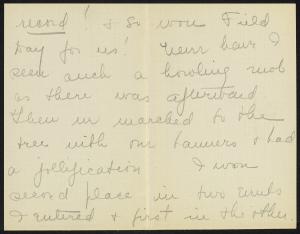 record! & so won Field
Day for us! Never have I
seen such a howling mob
as there was afterward
Then we marched to the
tree with our banners & had
a jollification I won
second place in two events
I entered & first in the other.